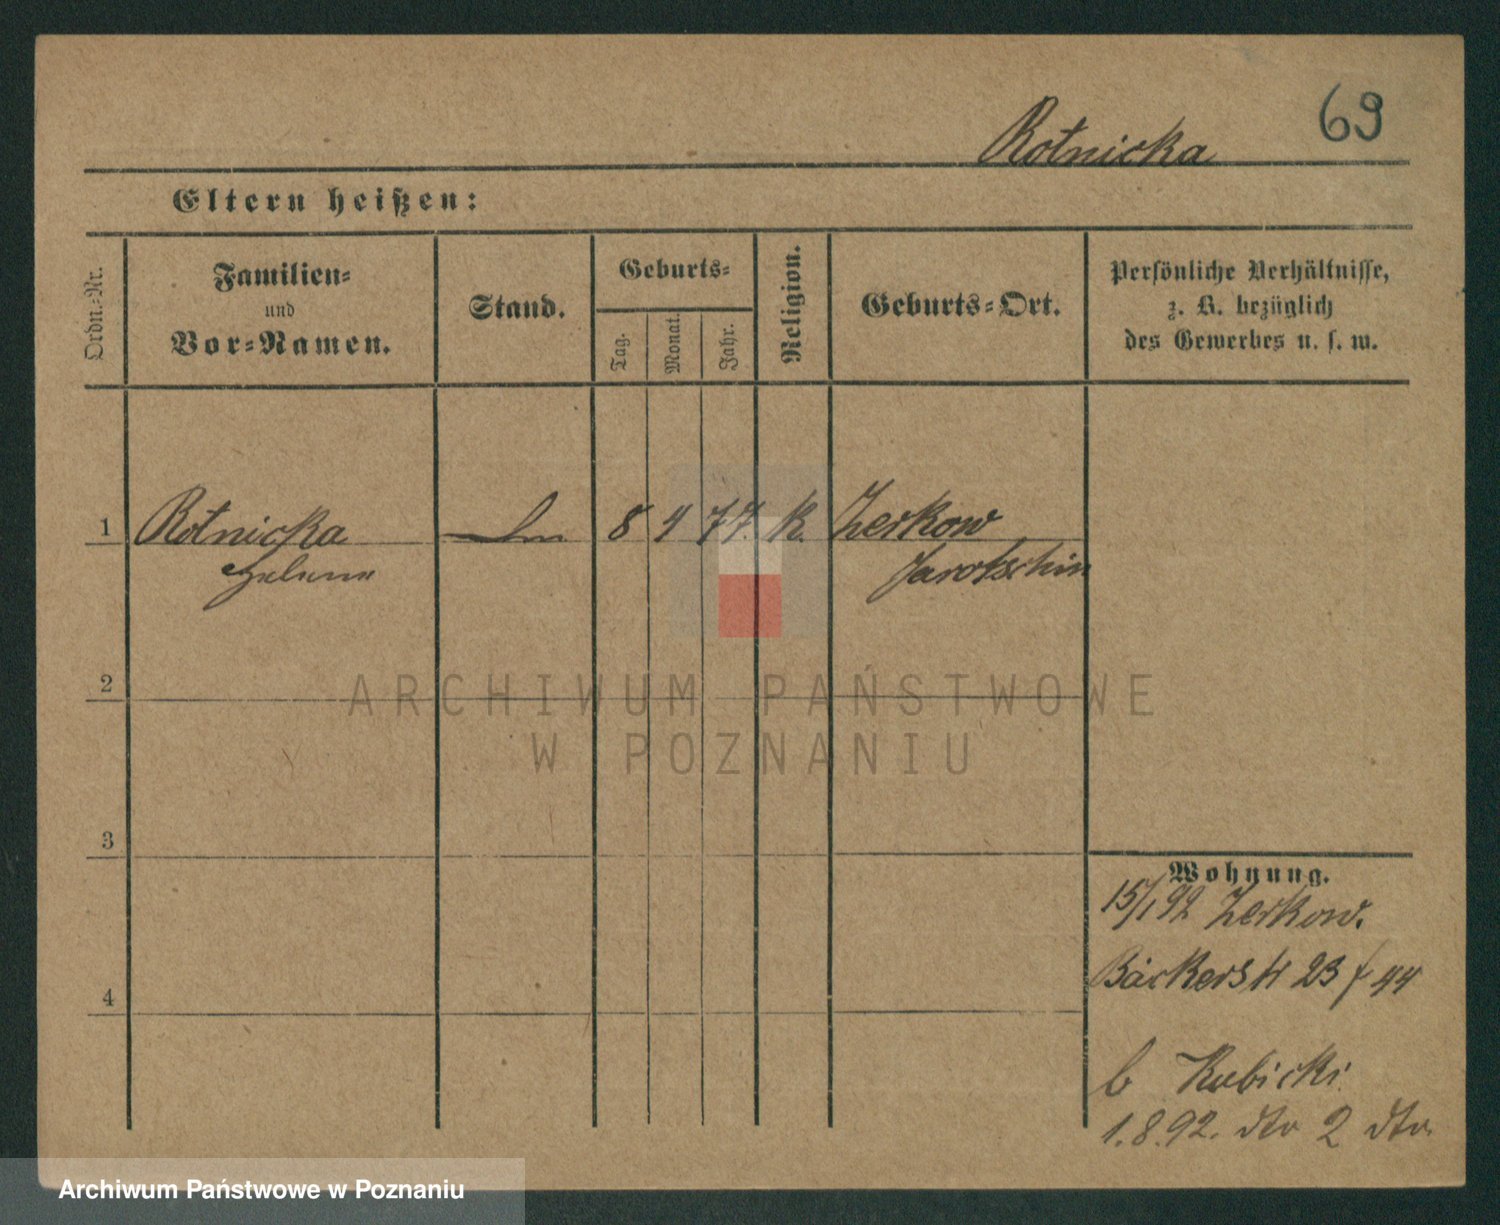 69
Rotnicka
Eltern heißen:
Ordn.-Nr.
Familien-
und
Vor-Namen.
Stand.
Geburts-
Tag.
Monat.
Jahr.
Religion.
Geburts-Ort.
Persönliche Verhältnisse,
z. B. bezüglich
des Gewerbes u. s. w.
1 Rotnicka 8 4 77. k. Zerkow
Jarotschin
2
ARCHIWUM PAŃSTWOWE
W POZNANIU
3
4
Wohnung.
15/1 92 Zerkow.
Bäckerstr 23 f 44
b Kubicki
1.8.92. dto 2 dto
Archiwum Państwowe w Poznaniu